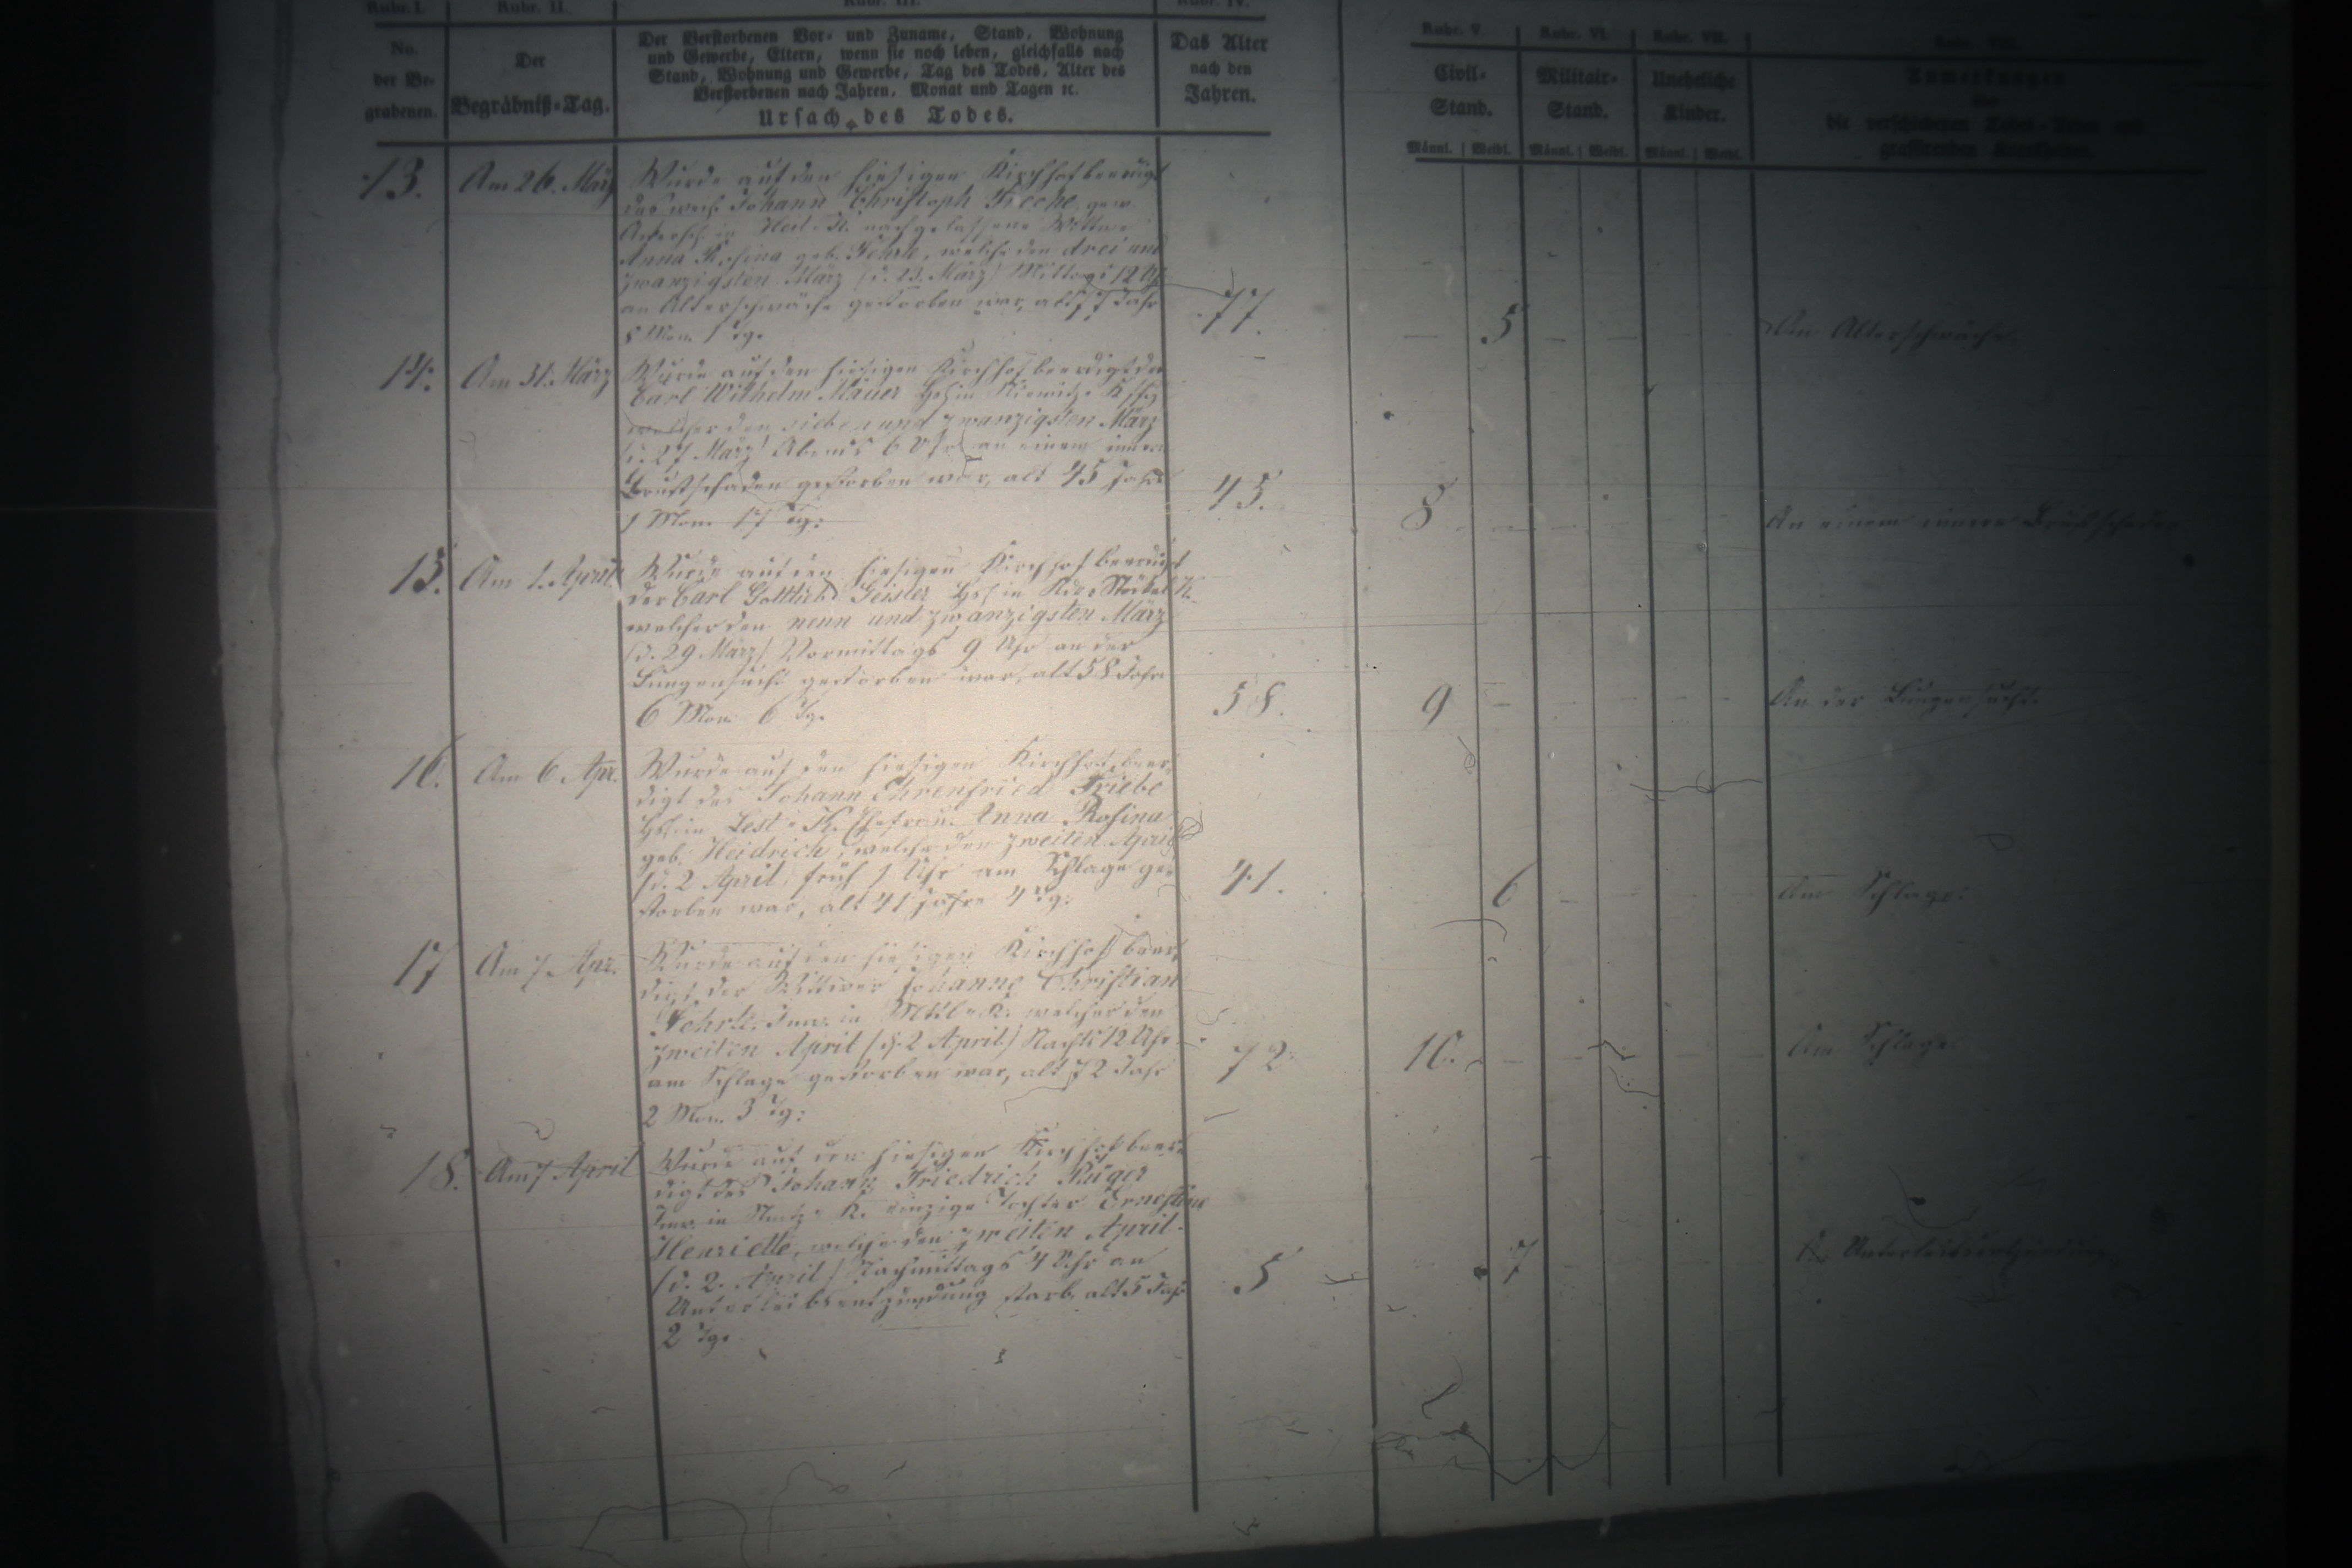 Rubr. I.
Rubr. II.
Rubr. III.
Rubr. IV.
Rubr. V.
Rubr. VI.
Rubr. VII.
No.
der Be-
grabenen.
Der
Begräbniß-Tag.
Der Verstorbenen Vor- und Zuname, Stand, Wohnung
und Gewerbe, Eltern, wenn sie noch leben, gleichfalls nach
Stand, Wohnung und Gewerbe, Tag des Todes, Alter des
Verstorbenen nach Jahren, Monat und Tagen ꝛc.
Ursach des Todes.
Das Alter
nach den
Jahren.
Civil-
Stand.
Militair-
Stand.
Uneheliche
Kinder.
Anmerkungen
über
die verschiedenen Todes-Arten und
grassirenden Krankheiten.
Männl. Weibl. Männl. Weibl. Männl. Weibl.
13. Am 26. März
Wurde auf den hiesigen Kirchhof beerdigt
des weil. Johann Christoph
in nachgelassene Wittwe
Anna Rosina geb. welche den drei und
zwanzigsten März (d. 23. März) Mittags 12 Uhr
an Altersschwäche gestorben war, alt 77 Jahr
8 Mon. 1 Tg.
77.
5
An Altersschwäche.
14. Am 31. März
Wurde auf den hiesigen Kirchhof beerdigt der
Carl Wilhelm Mauer
welcher den sieben und zwanzigsten März
(d. 27 März) Abends 6 Uhr an einem innern
Brustschaden gestorben war, alt 45 Jahr
1 Mon. 17 Tg:
45.
8
An einem innern Brustschaden
15. Am 1. April
Wurde auf den hiesigen Kirchhof beerdigt
der Carl Gottlieb Geisler in
welcher den neun und zwanzigsten März
(d. 29 März) Vormittags 9 Uhr an der
Lungensucht gestorben war, alt 58 Jahr
6 Mon. 6 Tg.
58.
9
An der Lungensucht.
16. Am 6 Apr.
Wurde auf den hiesigen Kirchhof beer-
digt des Johann Ehrenfried Friebe
in Ehefrau Anna Rosina
geb. Heidrich, welche den zweiten April
(d. 2 April) früh 1 Uhr am Schlage ge-
storben war, alt 41 Jahre 4 Tg:
41.
6
Am Schlage.
17 Am 7 Apr.
Wurde auf den hiesigen Kirchhof beer-
digt der Wittwer Johann Christian
in welcher den
zweiten April (d. 2 April) Nachts 12 Uhr
am Schlage gestorben war, alt 72 Jahr
2 Mon. 3 Tg:
72
10.
Am Schlage
18. Am 7 April
Wurde auf den hiesigen Kirchhof beer-
digt des Johann Friedrich Rüger
in einzige Tochter Ernestine
Henriette, welche den zweiten April
(d. 2. April) Nachmittags 4 Uhr an
Unterleibsentzündung starb, alt 5 Jahr
2 Tg.
5
7
Unterleibsentzündung